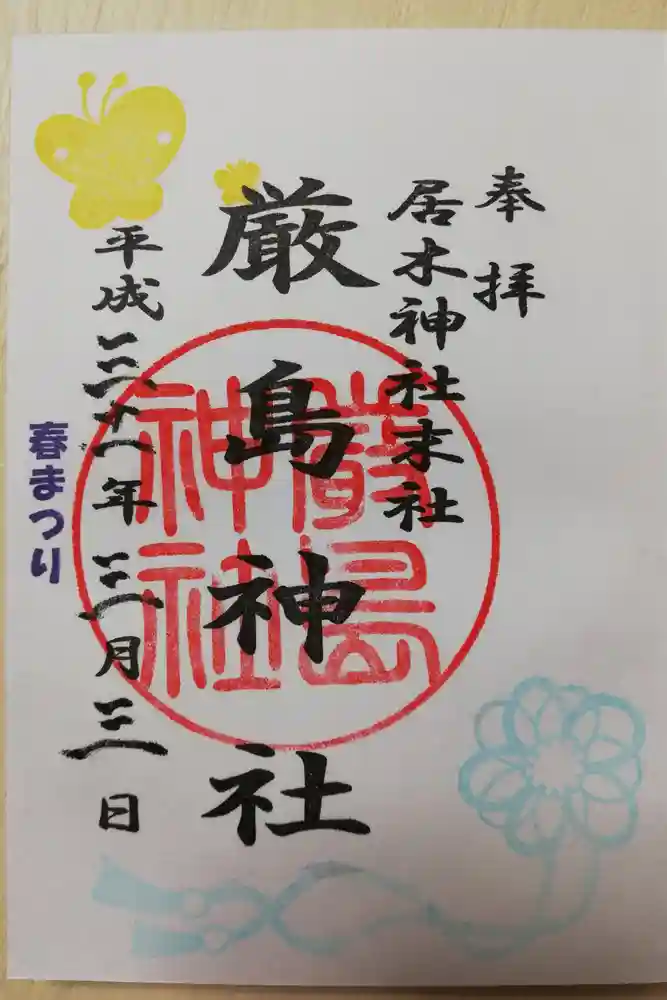 奉拝
居木神社末社
厳島神社
厳島神社
平成三十一年三月三日
春まつり